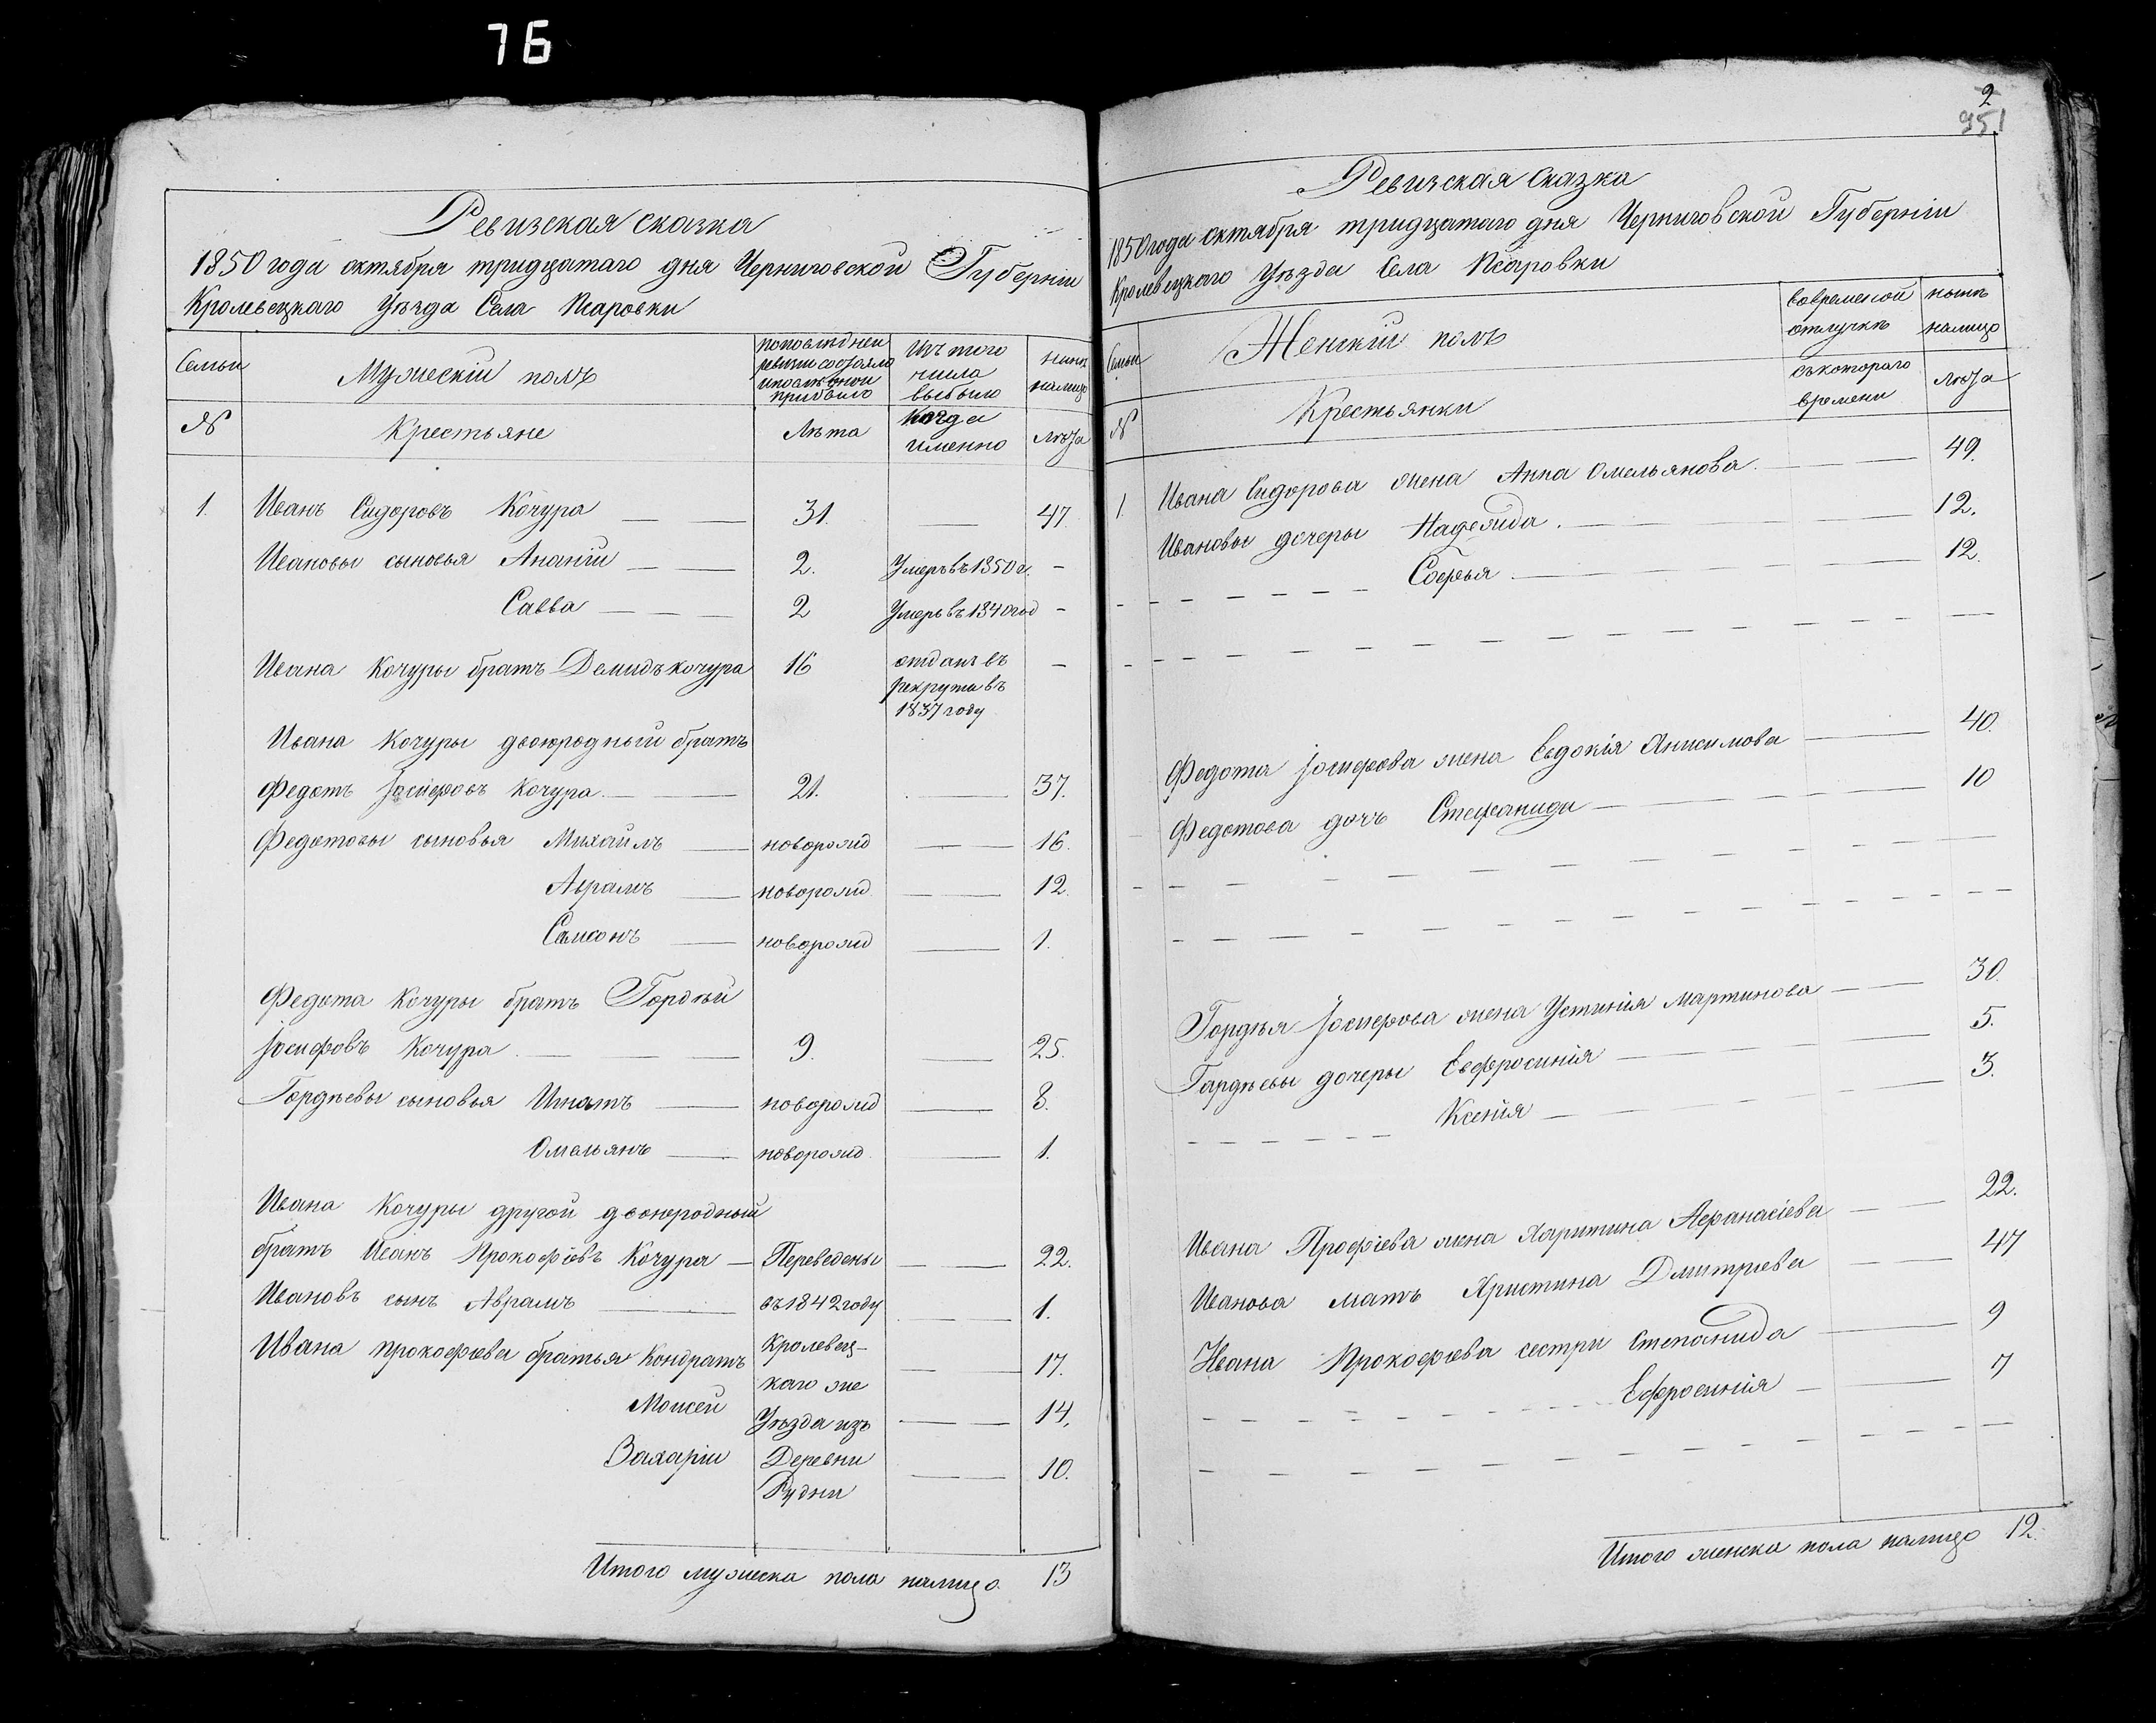 76
Ревизская сказка
1850 года октября тридцатаго дня Черниговской Губерніи
Кролевецкаго Уѣзда Села Псаровки
Семьи
Мужескій полъ
по последней
ревизіи состояло
и после оной
прибыло
Изъ того
числа
выбыло
ныне
налицо
№
Крестьяне
Лѣта
Когда
именно
Лѣта
1. Иванъ Сидоровъ Кочура 31. 47.
Ивановы сыновья Ананій 2. Умеръ въ 1850 г. -
Савва 2 Умеръ въ 1840 год -
Ивана Кочуры братъ Демидъ кочура 16 отданъ въ -
рекруты въ
1837 году
Ивана Кочуры двоюродный братъ
Федотъ Іосифовъ Кочура. 21. 37.
Федотовы сыновья Михаилъ новорожд 16.
Аврамъ новорожд. 12.
Самсонъ новорожд 1.
Федота Кочуры братъ Гордѣй
Іосифовъ Кочура. 9. 25.
Гордѣевы сыновья Игнатъ новорожд 8.
Омельянъ новорожд. 1.
Ивана Кочуры другой двоюродный
братъ Иванъ Прокофіевъ Кочура Переведены 22.
Ивановъ сынъ Аврамъ въ 1842 году 1.
Ивана Прокофіева братья Кондратъ Кролевец- 17.
каго же
Моисей Уѣзда изъ 14.
Захарій Деревни 10.
Рудни
Итого мужеска пола налицо. 13
2
951
Ревизская Сказка
1850 года октября тридцатаго дня Черниговской Губерніи
Кролевецкаго Уѣзда Села Псаровки
Семьи
Женскій полъ
во временой
отлучкѣ
нынѣ
налицо
№
Крестьянки
съ котораго
времени
Лѣта
1. Ивана Сидорова жена Анна Омельянова. 49.
Ивановы дочеры Надежда. 12.
Софья 12.
Федота Іосифова жена Евдокія Анисимова 40.
Федотова дочъ Стефанида 10
Гордѣя Іосифова жена Устинія Мартинова 30.
Гордѣевы дочеры Евфросинія 5.
Ксенія 3.
Ивана Профіева жена Харитина Афанасіева 22.
Иванова мать Христина Дмитріева 47
Ивана Прокофіева сестри Степанида 9
Ефросинія 7
Итого женска пола налицо 12.